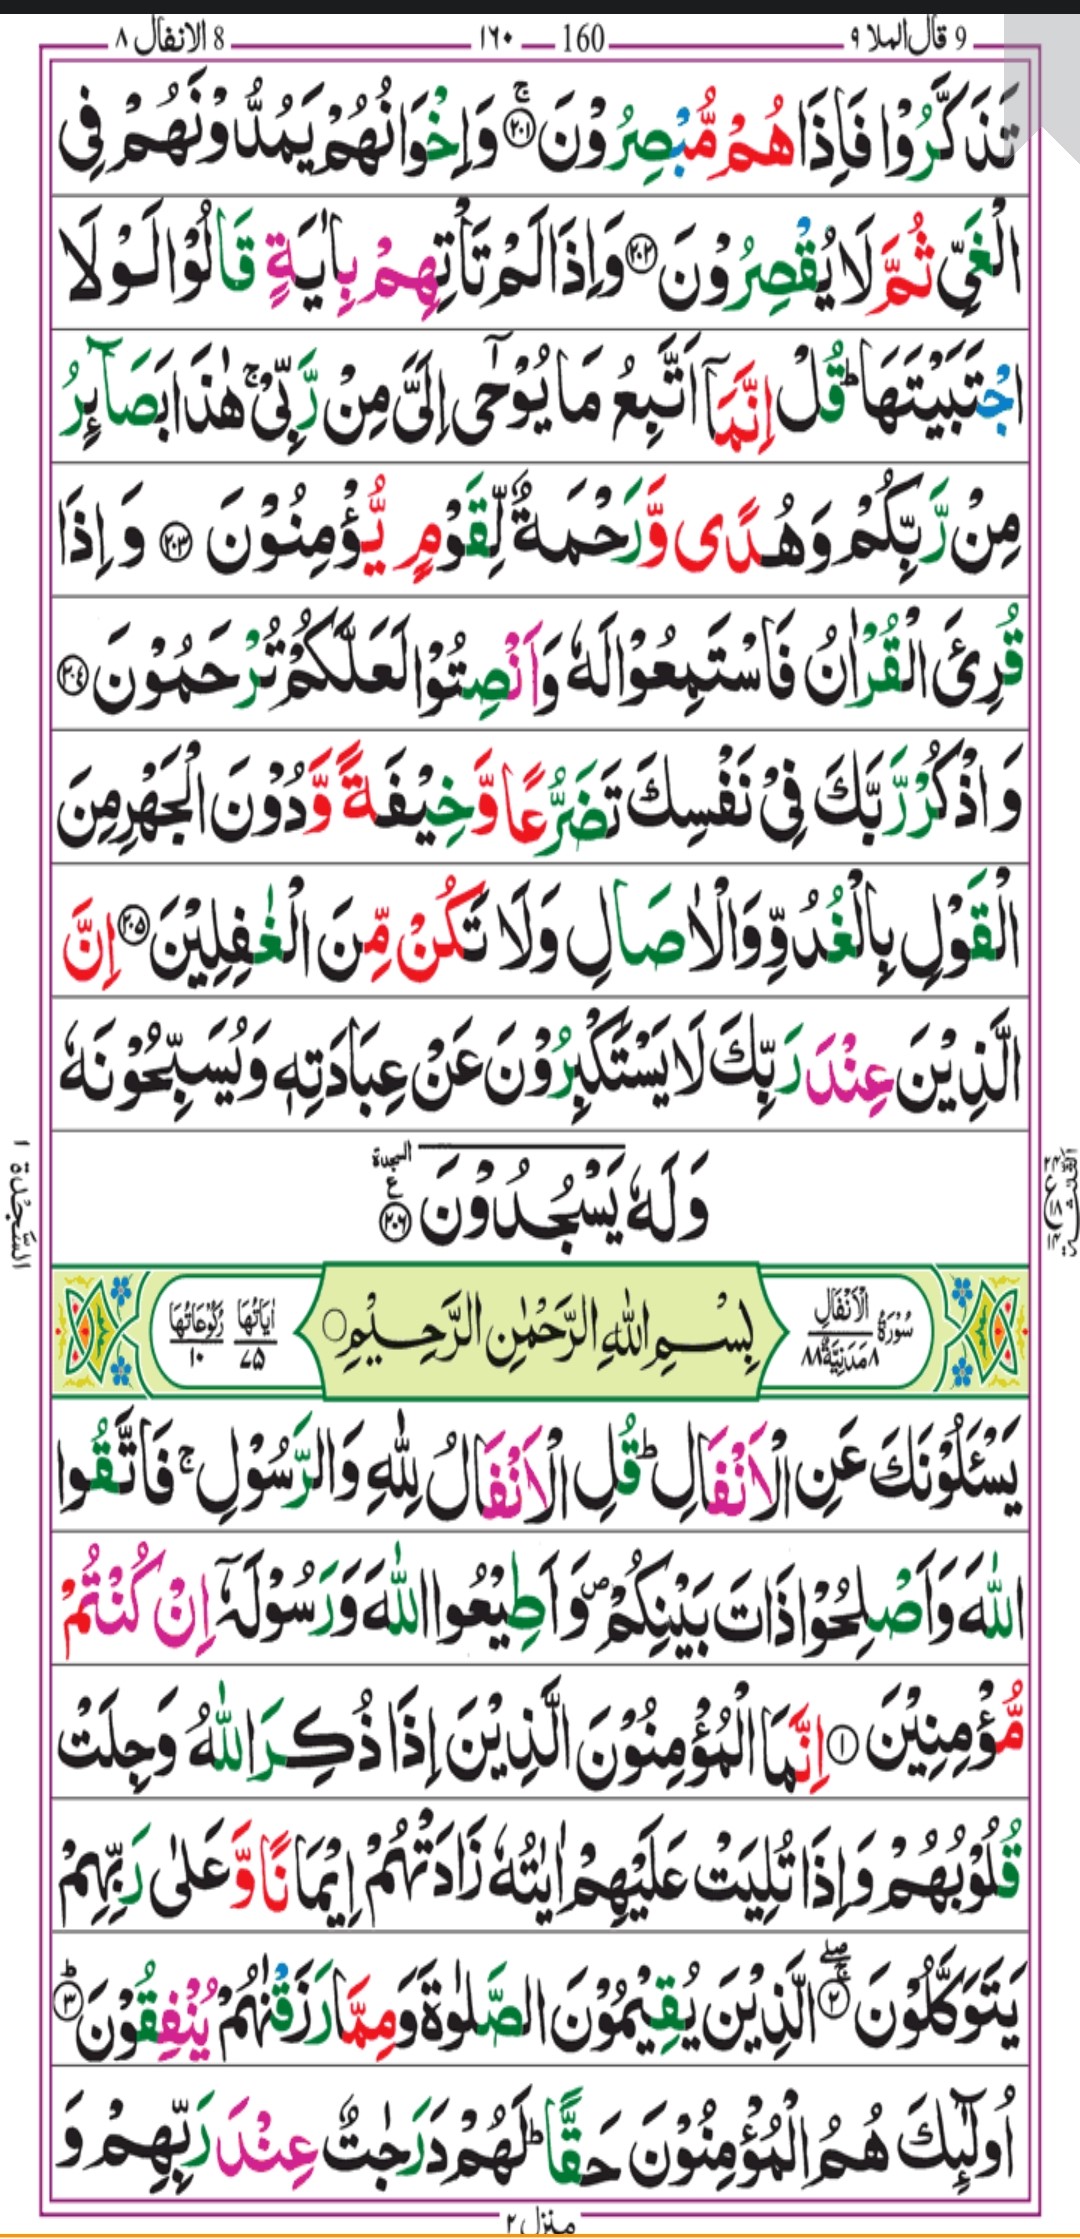 9 قال الملا ٩ 160 — ١٦٠ 8 الانفال ٨
تَذَكَّرُوْا فَاِذَا هُمْ مُّبْصِرُوْنَ ۚ﴿۲۰۱﴾ وَاِخْوَانُهُمْ يَمُدُّوْنَهُمْ فِى
الْغَىِّ ثُمَّ لَا يُقْصِرُوْنَ ﴿۲۰۲﴾ وَاِذَا لَمْ تَاْتِهِمْ بِاٰيَةٍ قَالُوْا لَوْلَا
اجْتَبَيْتَهَا ؕ قُلْ اِنَّمَاۤ اَتَّبِعُ مَا يُوْحٰٓى اِلَىَّ مِنْ رَّبِّىْ ۚ هٰذَا بَصَآئِرُ
مِنْ رَّبِّكُمْ وَهُدًى وَّرَحْمَةٌ لِّقَوْمٍ يُّؤْمِنُوْنَ ﴿۲۰۳﴾ وَاِذَا
قُرِئَ الْقُرْاٰنُ فَاسْتَمِعُوْا لَهٗ وَاَنْصِتُوْا لَعَلَّكُمْ تُرْحَمُوْنَ ﴿۲۰۴﴾
وَاذْكُرْ رَّبَّكَ فِىْ نَفْسِكَ تَضَرُّعًا وَّخِيْفَةً وَّدُوْنَ الْجَهْرِ مِنَ
الْقَوْلِ بِالْغُدُوِّ وَالْاٰصَالِ وَلَا تَكُنْ مِّنَ الْغٰفِلِيْنَ ﴿۲۰۵﴾ اِنَّ
الَّذِيْنَ عِنْدَ رَبِّكَ لَا يَسْتَكْبِرُوْنَ عَنْ عِبَادَتِهٖ وَيُسَبِّحُوْنَهٗ
وَلَهٗ يَسْجُدُوْنَ ﴿۲۰۶﴾ ع السجدة
السَّجْدَة ١
سُوْرَةُ الْاَنْفَالِ ٨ مَدَنِيَّةٌ ٨٨ بِسْمِ اللّٰهِ الرَّحْمٰنِ الرَّحِيْمِ ○ اٰيَاتُهَا ۷۵ رُكُوْعَاتُهَا ۱۰
يَسْـَٔلُوْنَكَ عَنِ الْاَنْفَالِ ؕ قُلِ الْاَنْفَالُ لِلّٰهِ وَالرَّسُوْلِ ۚ فَاتَّقُوا
اللّٰهَ وَاَصْلِحُوْا ذَاتَ بَيْنِكُمْ ۖ وَاَطِيْعُوا اللّٰهَ وَرَسُوْلَهٗۤ اِنْ كُنْتُمْ
مُّؤْمِنِيْنَ ﴿۱﴾ اِنَّمَا الْمُؤْمِنُوْنَ الَّذِيْنَ اِذَا ذُكِرَ اللّٰهُ وَجِلَتْ
قُلُوْبُهُمْ وَاِذَا تُلِيَتْ عَلَيْهِمْ اٰيٰتُهٗ زَادَتْهُمْ اِيْمَانًا وَّعَلٰى رَبِّهِمْ
يَتَوَكَّلُوْنَ ۖۚ﴿۲﴾ الَّذِيْنَ يُقِيْمُوْنَ الصَّلٰوةَ وَمِمَّا رَزَقْنٰهُمْ يُنْفِقُوْنَ ؕ﴿۳﴾
اُولٰٓئِكَ هُمُ الْمُؤْمِنُوْنَ حَقًّا ؕ لَهُمْ دَرَجٰتٌ عِنْدَ رَبِّهِمْ وَ
منزل ٢